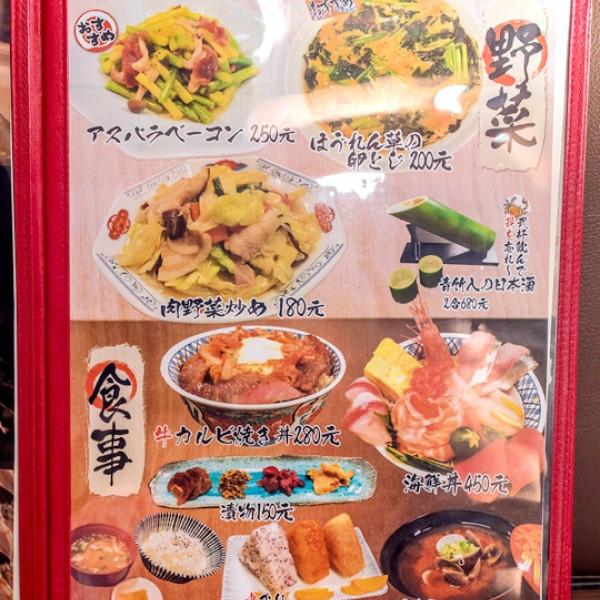 おすすめ
野菜
アスパラベーコン 250元
ほうれん草の
卵とじ 200元
肉野菜炒め 180元
青竹入の日本酒
2合680元
食事
牛カルビ焼き丼280元
海鮮丼450元
漬物150元